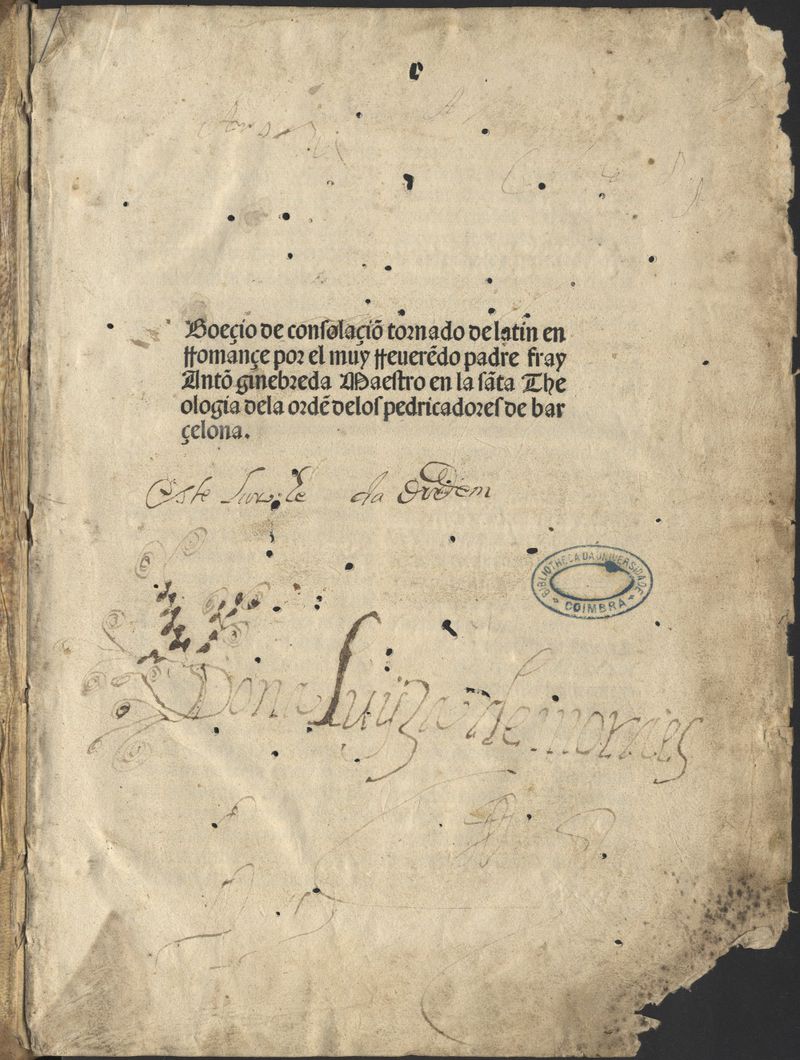 Boeçio de consolaçiõ tornado de latin en
rromançe por el muy rreuerẽdo padre fray
Antõ ginebreda Maestro en la sãta The
ologia dela ordẽ delos pedricadores de bar
çelona.
Este da Ordem
BIBLIOTHECA DA UNIVERSIDADE
COIMBRA
Dona Luyza de moraes